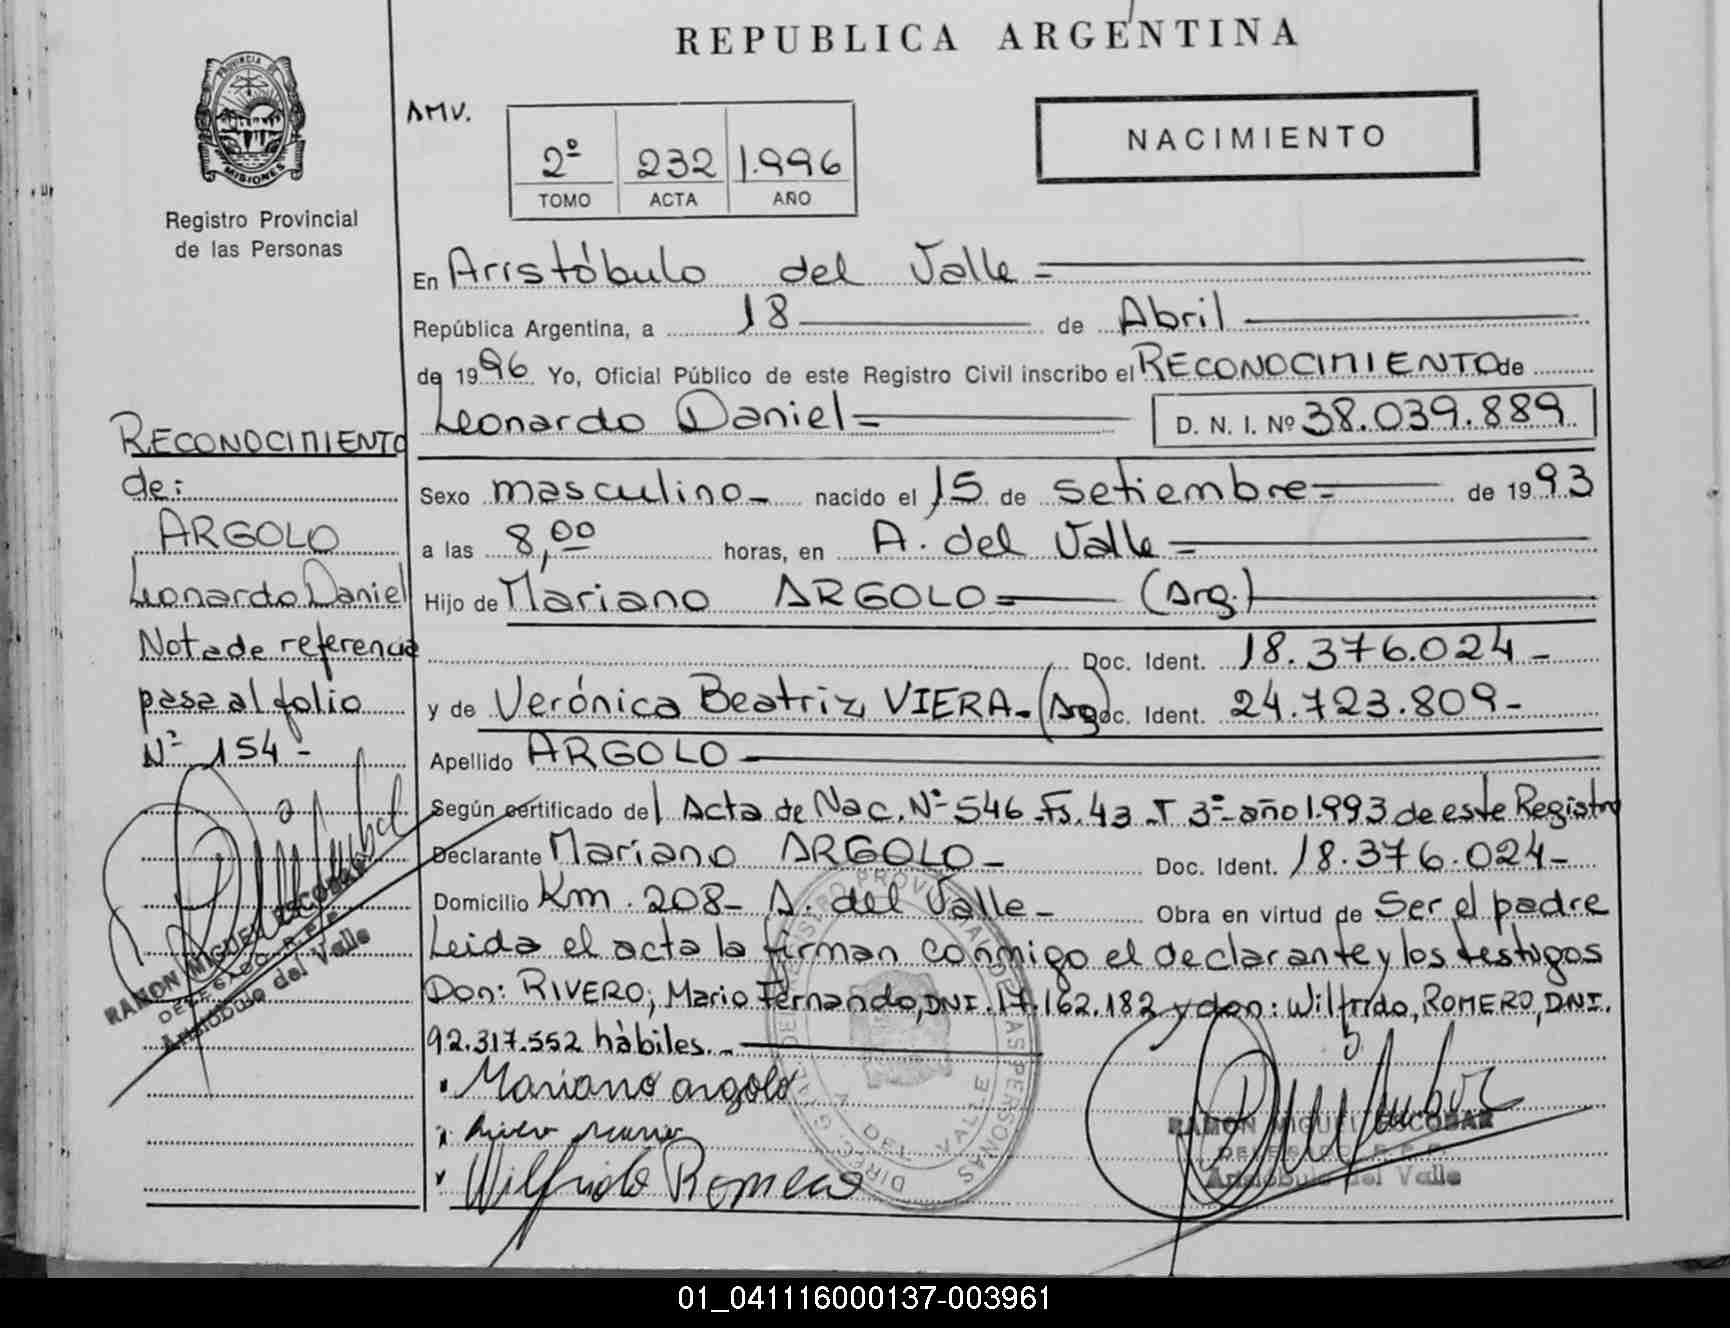 REPUBLICA ARGENTINA
PROVINCIA DE
MISIONES
Registro Provincial
de las Personas
AMV.
2º 232 1.996
TOMO ACTA AÑO
NACIMIENTO
En Aristóbulo del Valle=
República Argentina, a 18 de Abril
de 1996 Yo, Oficial Público de este Registro Civil inscribo el RECONOCIMIENTO de
Leonardo Daniel= D. N. I. Nº 38.039.889.
Sexo masculino- nacido el 15 de setiembre= de 1993
a las 8,00 horas, en A. del Valle=
Hijo de Mariano ARGOLO= (Arg.)
Doc. Ident. 18.376.024-
y de Verónica Beatriz VIERA.(Arg) Doc. Ident. 24.723.809-
Apellido ARGOLO
Según certificado del Acta de Nac. Nº 546 Fs. 43 T 3º año 1.993 de este Registro
Declarante Mariano ARGOLO- Doc. Ident. 18.376.024-
Domicilio Km. 208- A. del Valle- Obra en virtud de Ser el padre
Leida el acta la firman conmigo el declarante y los testigos
Don: RIVERO, Mario Fernando, DNI. 17.162.182 y don: Wilfrido, ROMERO, DNI.
92.317.552 hàbiles.-
Mariano argolo
Wilfrido Romero
RAMON MIGUEL ESCOBAR
DELEGADO R.P.P.
Aristóbulo del Valle
RECONOCIMIENTO
de:
ARGOLO
Leonardo Daniel
Nota de referencia
pasa al folio
Nº 154-
RAMON MIGUEL ESCOBAR
DELEGADO R.P.P.
Aristóbulo del Valle
01_041116000137-003961